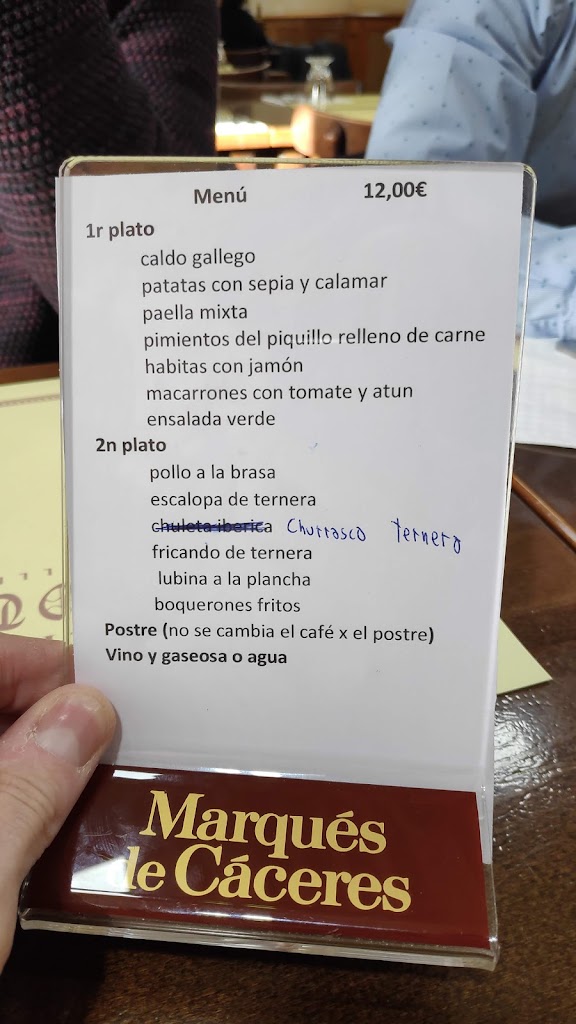 Menú 12,00€
1r plato
caldo gallego
patatas con sepia y calamar
paella mixta
pimientos del piquillo relleno de carne
habitas con jamón
macarrones con tomate y atun
ensalada verde
2n plato
pollo a la brasa
escalopa de ternera
chuleta iberica Churrasco Ternera
fricando de ternera
lubina a la plancha
boquerones fritos
Postre (no se cambia el café x el postre)
Vino y gaseosa o agua
Marqués
de Cáceres